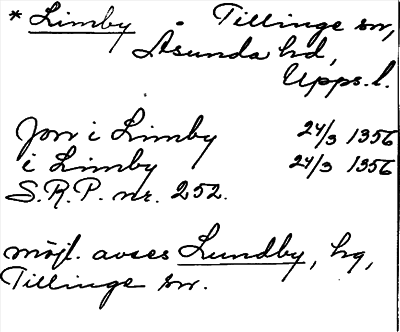 * Limby . Tillinge sn,
Åsunda hd,
Upps. l.
Jon i Limby 24/3 1356
i Limby 24/3 1356
S.R.P. nr. 252.
möjl. avses Lundby, hg,
Tillinge sn.